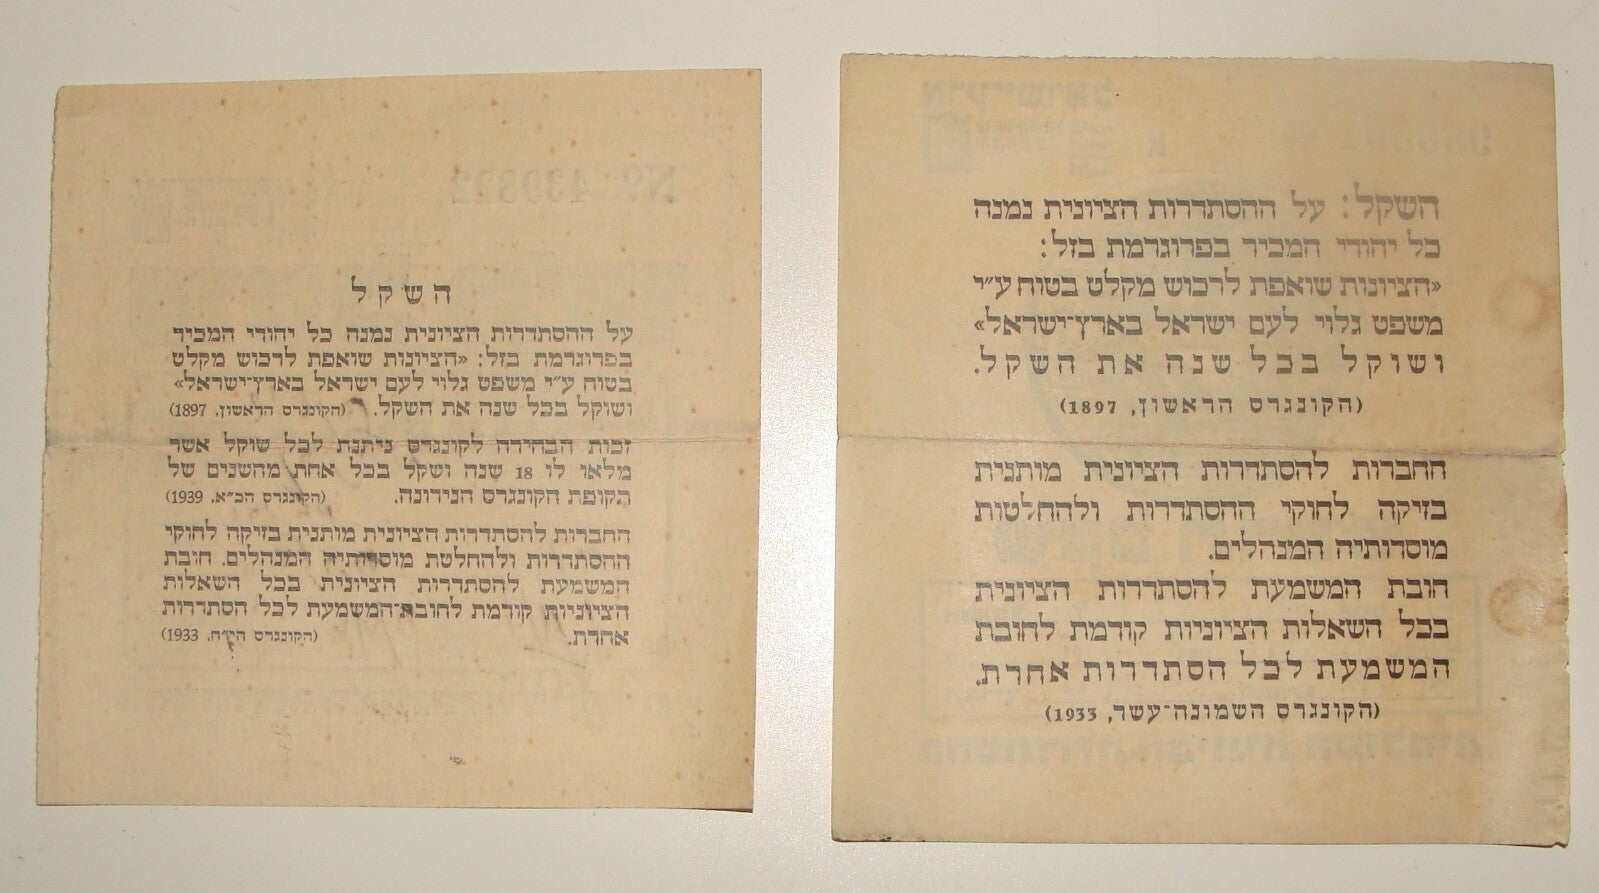 השקל
על ההסתדרות הציונית נמנה כל יהודי המכיר
בפרוגרמת בזל: «הציונות שואפת לרכוש מקלט
בטוח ע״י משפט גלוי לעם ישראל בארץ־ישראל»
ושוקל בכל שנה את השקל. (הקונגרס הראשון, 1897)
זכות הבחירה לקונגרס ניתנת לכל שוקל אשר
מלאו לו 18 שנה ושקל בכל אחת מהשנים של
תקופת הקונגרס הנידונה. (הקונגרס הכ״א, 1939)
החברות להסתדרות הציונית מותנית בזיקה לחוקי
ההסתדרות ולהחלטת מוסדותיה המנהלים. חובת
המשמעת להסתדרות הציונית בכל השאלות
הציוניות קודמת לחובת־המשמעת לכל הסתדרות
אחרת. (הקונגרס הי״ח, 1933)
Nº 439822
השקל: על ההסתדרות הציונית נמנה
כל יהודי המכיר בפרוגרמת בזל:
«הציונות שואפת לרכוש מקלט בטוח ע״י
משפט גלוי לעם ישראל בארץ־ישראל»
ושוקל בכל שנה את השקל.
(הקונגרס הראשון, 1897)
החברות להסתדרות הציונית מותנית
בזיקה לחוקי ההסתדרות ולהחלטות
מוסדותיה המנהלים.
חובת המשמעת להסתדרות הציונית
בכל השאלות הציוניות קודמת לחובת
המשמעת לכל הסתדרות אחרת.
(הקונגרס השמונה־עשר, 1933)